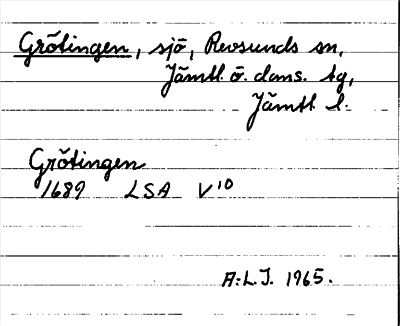 Grötingen, sjö, Revsunds sn,
Jämtl. ö. doms. tg,
Jämtl l.
Grötingen
1689 LSA V10
A.L.J. 1965.